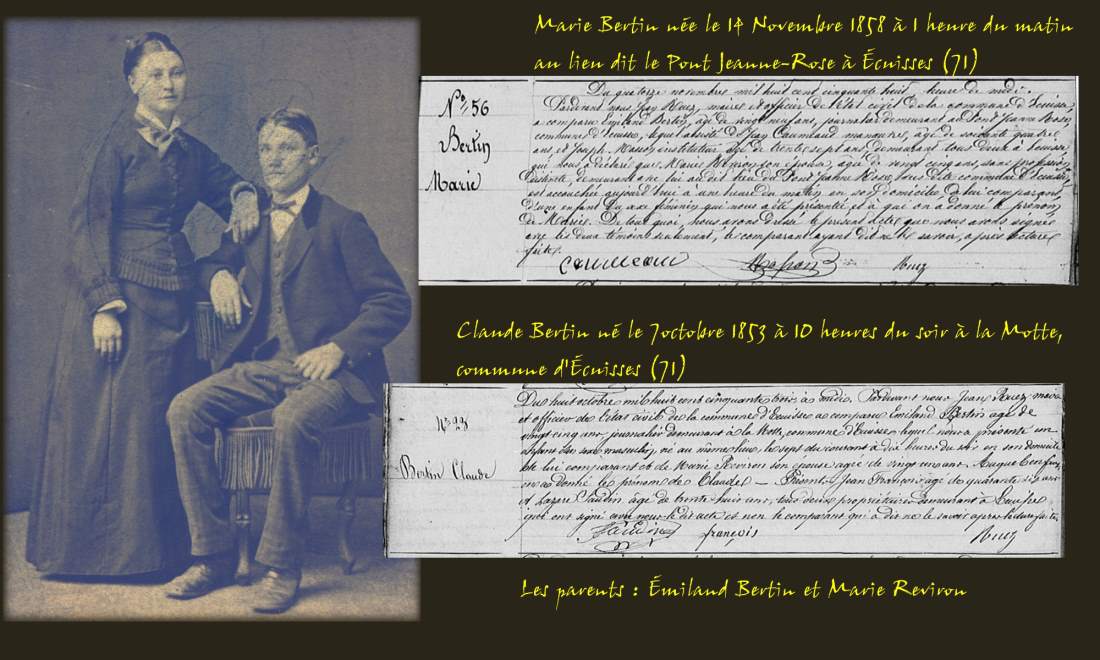 Marie Bertin née le 14 Novembre 1858 à 1 heure du matin
au lieu dit le Pont Jeanne-Rose à Écuisses (71)
N° 56
Bertin
Marie
Du quatorze novembre mil huit cent cinquante huit, heure de midi.
Pardevant nous Jean Ruez, maire et officier de l'état civil de la commune d'Ecuisse,
a comparu Emiland Bertin, âgé de vingt neuf ans, journalier demeurant au Pont Jeanne Rose,
commune d'Ecuisse, lequel assisté de Jean Caumeau manœuvre, âgé de soixante quatre
ans et Joseph instituteur âgé de trente sept ans, demeurant tous deux à Ecuisse
qui nous a déclaré que Marie son épouse, âgée de vingt cinq ans, sans profession
demeurant avec lui au dit lieu du Pont Jeanne Rose, sus dite commune d'Ecuisse,
est accouchée aujourd'hui à une heure du matin en son domicile de lui comparant,
d'un enfant du sexe féminin qui nous a été présenté et à qui on a donné le prénom
de Marie. De tout quoi, nous avons dressé le présent acte que nous avons signé
avec les deux témoins seulement, le comparant ayant dit ne le savoir, après lecture
faite.
Ruez
Claude Bertin né le 7octobre 1853 à 10 heures du soir à la Motte,
commune d'Écuisses (71)
N° 28
Bertin Claude
Du huit octobre mil huit cent cinquante trois à midi. Pardevant nous Jean Ruez maire
et officier de l'état civil de la commune d'Ecuisse a comparu Emiland Bertin âgé de
vingt cinq ans, journalier demeurant à la Motte, commune d'Ecuisse lequel nous a présenté un
enfant du sexe masculin, né au même lieu, le sept du courant à dix heures du soir en son domicile
de lui comparant et de Marie Reviron son épouse agée de vingt un ans. Auquel enfant
on a donné le prénom de Claude. — Présents Jean François âgé de quarante six ans
et Lazare âgé de trente huit ans, tous deux propriétaires demeurant à Ecuisse
qui ont signé avec nous le dit acte et non le comparant qui a dit ne le savoir après lecture faite.
françois
Ruez
Les parents : Émiland Bertin et Marie Reviron